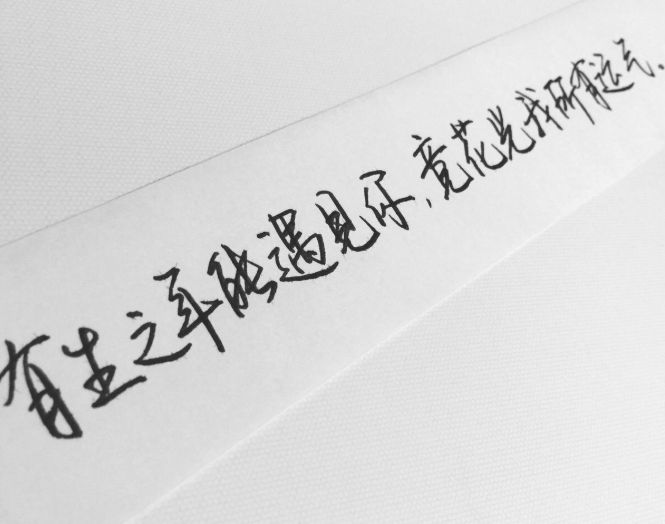 有生之年能遇见你,竟花光我所有运气.